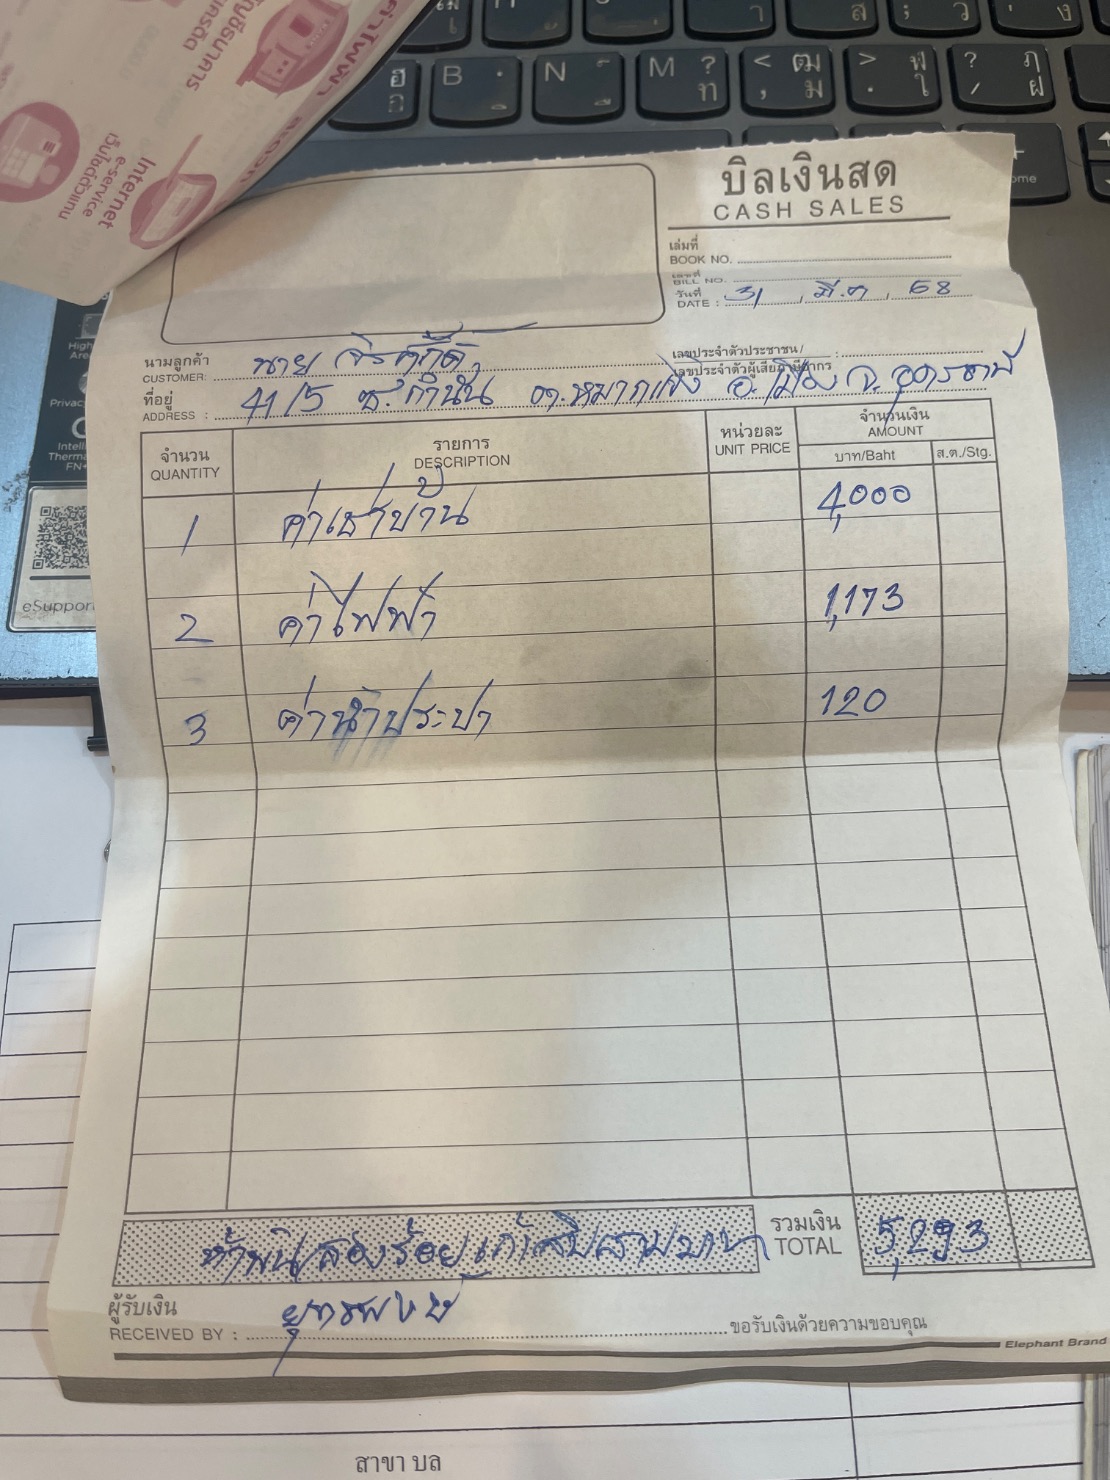 ค่าไฟฟ้า
Internet
e-service
B
N
M ? ท
< ฒ , ม
> ฬ . ใ
? ฦ / ฝ
บิลเงินสด
CASH SALES
เล่มที่
BOOK NO.
เลขที่
BILL NO.
วันที่
DATE : 31 มี.ค 68
นามลูกค้า
CUSTOMER: นาย จิรศักดิ์
เลขประจำตัวประชาชน/
เลขประจำตัวผู้เสียภาษีอากร
ที่อยู่
ADDRESS : 41/5 ซ.กำนัน ต.หมากแข้ง อ.เมือง จ.อุดรธานี
จำนวน
QUANTITY
รายการ
DESCRIPTION
หน่วยละ
UNIT PRICE
จำนวนเงิน
AMOUNT
บาท/Baht ส.ต./Stg.
1 ค่าเช่าบ้าน 4,000
2 ค่าไฟฟ้า 1,173
3 ค่าน้ำประปา 120
ห้าพันสองร้อยเก้าสิบสามบาท
รวมเงิน
TOTAL 5,293
ผู้รับเงิน
RECEIVED BY :
ขอรับเงินด้วยความขอบคุณ
Elephant Brand
eSupport
สาขา บล